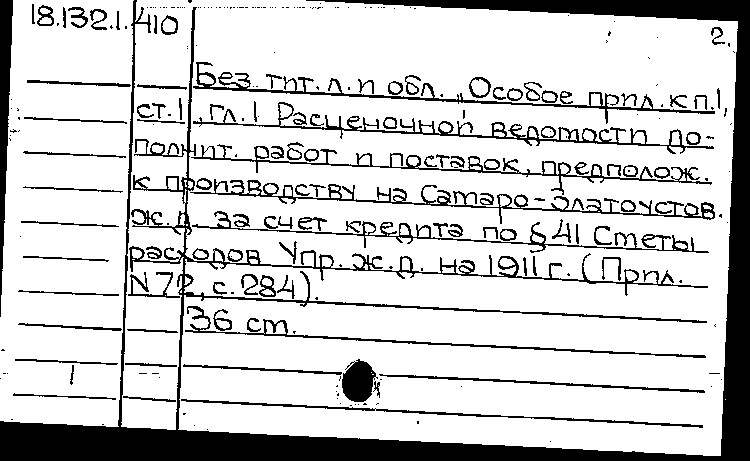 18.132.1.410
2.
Без тит.л. и обл. „Особое прил. к п.1,
ст.1, гл.1 Расценочной ведомости до-
полнит. работ и поставок, предполож.
к производству на Самаро-Златоустов.
ж.д. за счет кредита по § 41 Сметы
расходов Упр. ж.д. на 1911 г. (Прил.
N 72, с. 284).
36 ст.
1